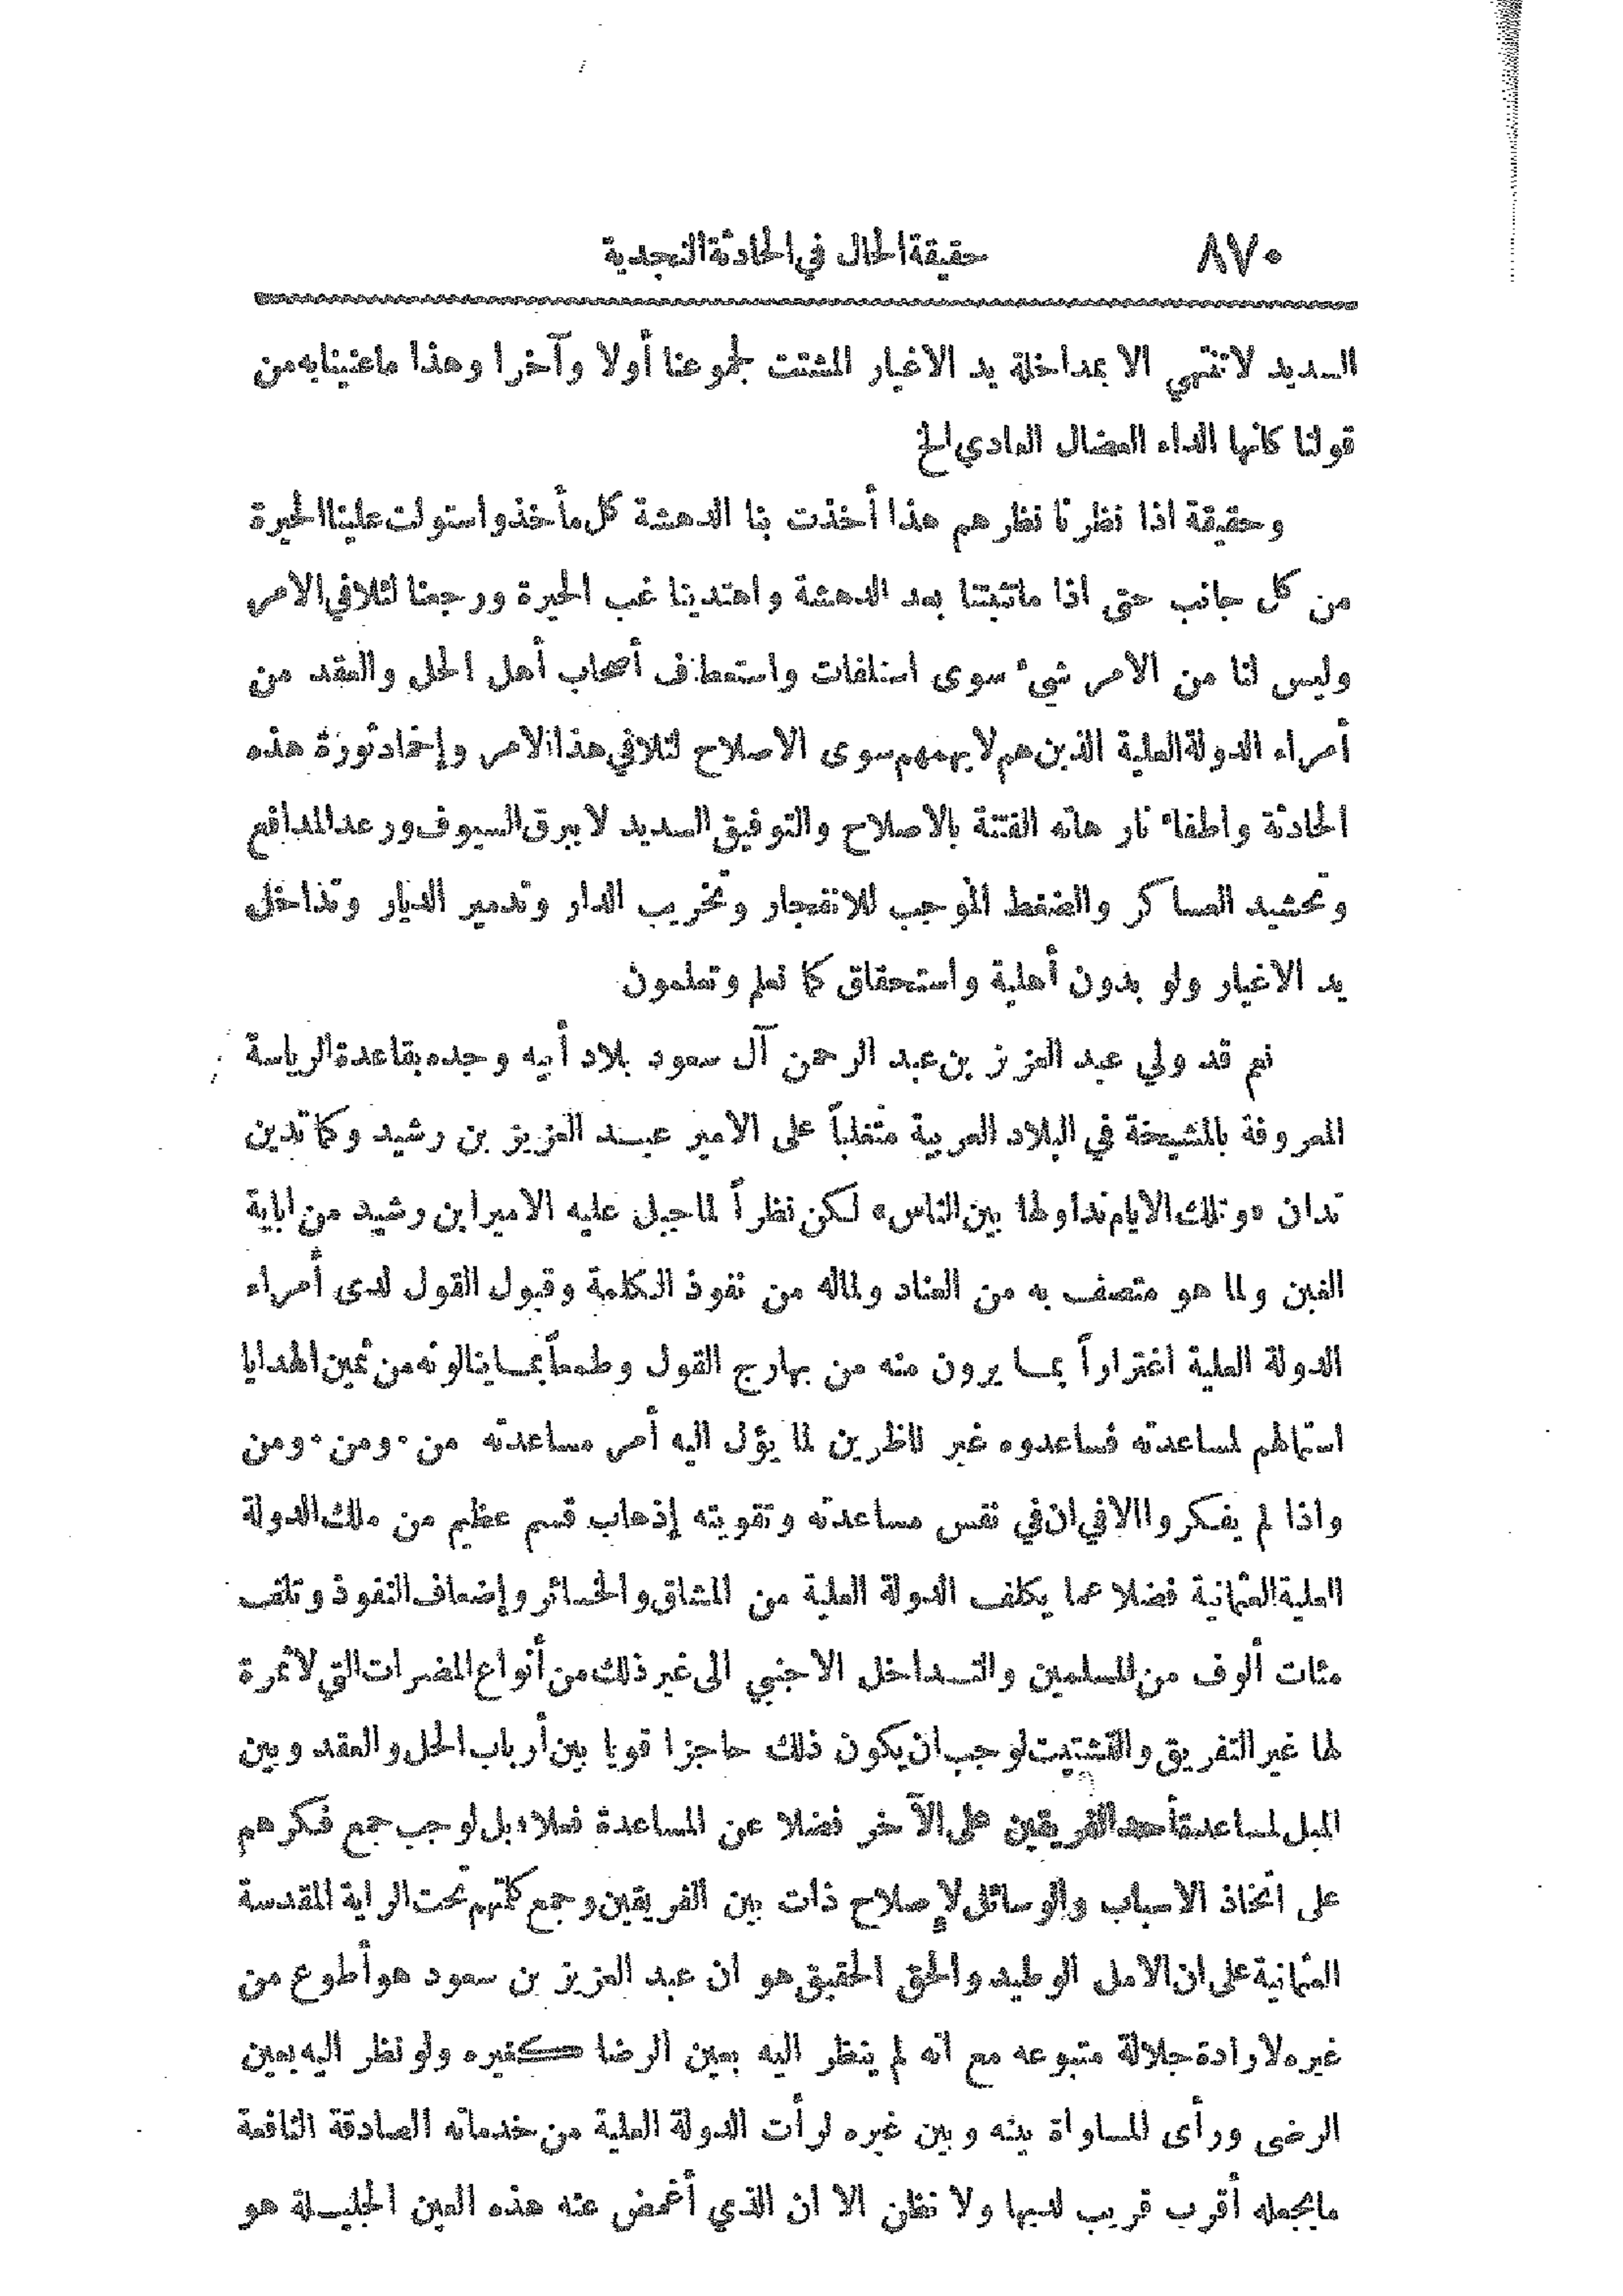 ٨٧٠ حقيقة الحال في الحادثة النجدية
السديد لا تنتهي الا بمداخلة يد الاغيار المشتت لجموعنا أولا وآخرا وهذا ما عنينا به من
قولنا كانها الداء العضال العادي الخ
وحقيقة اذا نظرنا نظرهم هذا أخذت بنا الدهشة كل مأخذ واستولت علينا الحيرة
من كل جانب حتى اذا ما تثبتنا بعد الدهشة واهتدينا غب الحيرة ورجعنا لتلافي الامر
وليس لنا من الامر شيء سوى استلفات واستعطاف أصحاب أهل الحل والعقد من
أمراء الدولة العلية الذين هم لا يهمهم سوى الاصلاح لتلافي هذا الامر وإخماد ثورة هذه
الحادثة واطفاء نار هاته الفتنة بالاصلاح والتوفيق السديد لا ببرق السيوف ورعد المدافع
وتحشيد العساكر والضغط الموجب للانفجار وتخريب الدار وتدمير الديار وتداخل
يد الاغيار ولو بدون أهلية واستحقاق كما نعلم وتعلمون
نعم قد ولي عبد العزيز بن عبد الرحمن آل سعود بلاد أبيه وجده بقاعدة الرياسة
المعروفة بالمشيخة في البلاد العربية متغلباً على الامير عبد العزيز بن رشيد وكما تدين
تدان «وتلك الايام نداولها بين الناس» لكن نظراً لما جبل عليه الامير ابن رشيد من اباية
الغبن ولما هو متصف به من العناد ولماله من نفوذ الكلمة وقبول القول لدى أمراء
الدولة العلية اغتراراً بما يرون منه من بهارج القول وطمعاً بما ينالونه من ثمين الهدايا
استمالهم لمساعدته فساعدوه غير ناظرين لما يؤل اليه أمر مساعدته من ٠ ومن ٠ ومن
واذا لم يفكروا الا في ان في نفس مساعدته وتقويته إذهاب قسم عظيم من ملك الدولة
العلية العثمانية فضلا عما يكلف الدولة العلية من المشاق والخسائر وإضعاف النفوذ وتلف
مئات ألوف من المسلمين والتداخل الاجنبي الى غير ذلك من أنواع المضرات التي لا ثمرة
لها غير التفريق والتشتيت لوجب ان يكون ذلك حاجزا قويا بين أرباب الحل والعقد وبين
الميل لمساعدة أحد الفريقين على الآخر فضلا عن المساعدة فعلا، بل لوجب جمع فكرهم
على اتخاذ الاسباب والوسائل لإصلاح ذات بين الفريقين وجمع كلمتهم تحت الراية المقدسة
العثمانية على ان الامل الوطيد والحق الحقيق هو ان عبد العزيز بن سعود هو أطوع من
غيره لارادة جلالة متبوعه مع انه لم ينظر اليه بعين الرضا كغيره ولو نظر اليه بعين
الرضى ورأى المساواة بينه وبين غيره لرأت الدولة العلية من خدماته الصادقة النافعة
ما يجعله أقرب قريب لديها ولا نظن الا ان الذي أغمض عنه هذه العين الجليلة هو